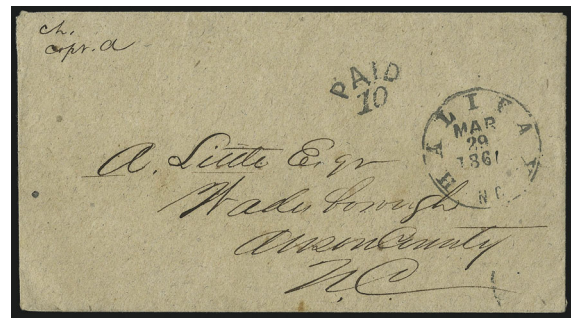 ch.
PAID
10
HALIFAX
MAR
29
1861
N.C.
A. Little Esqr
Wadesborough
Anson County
N.C.